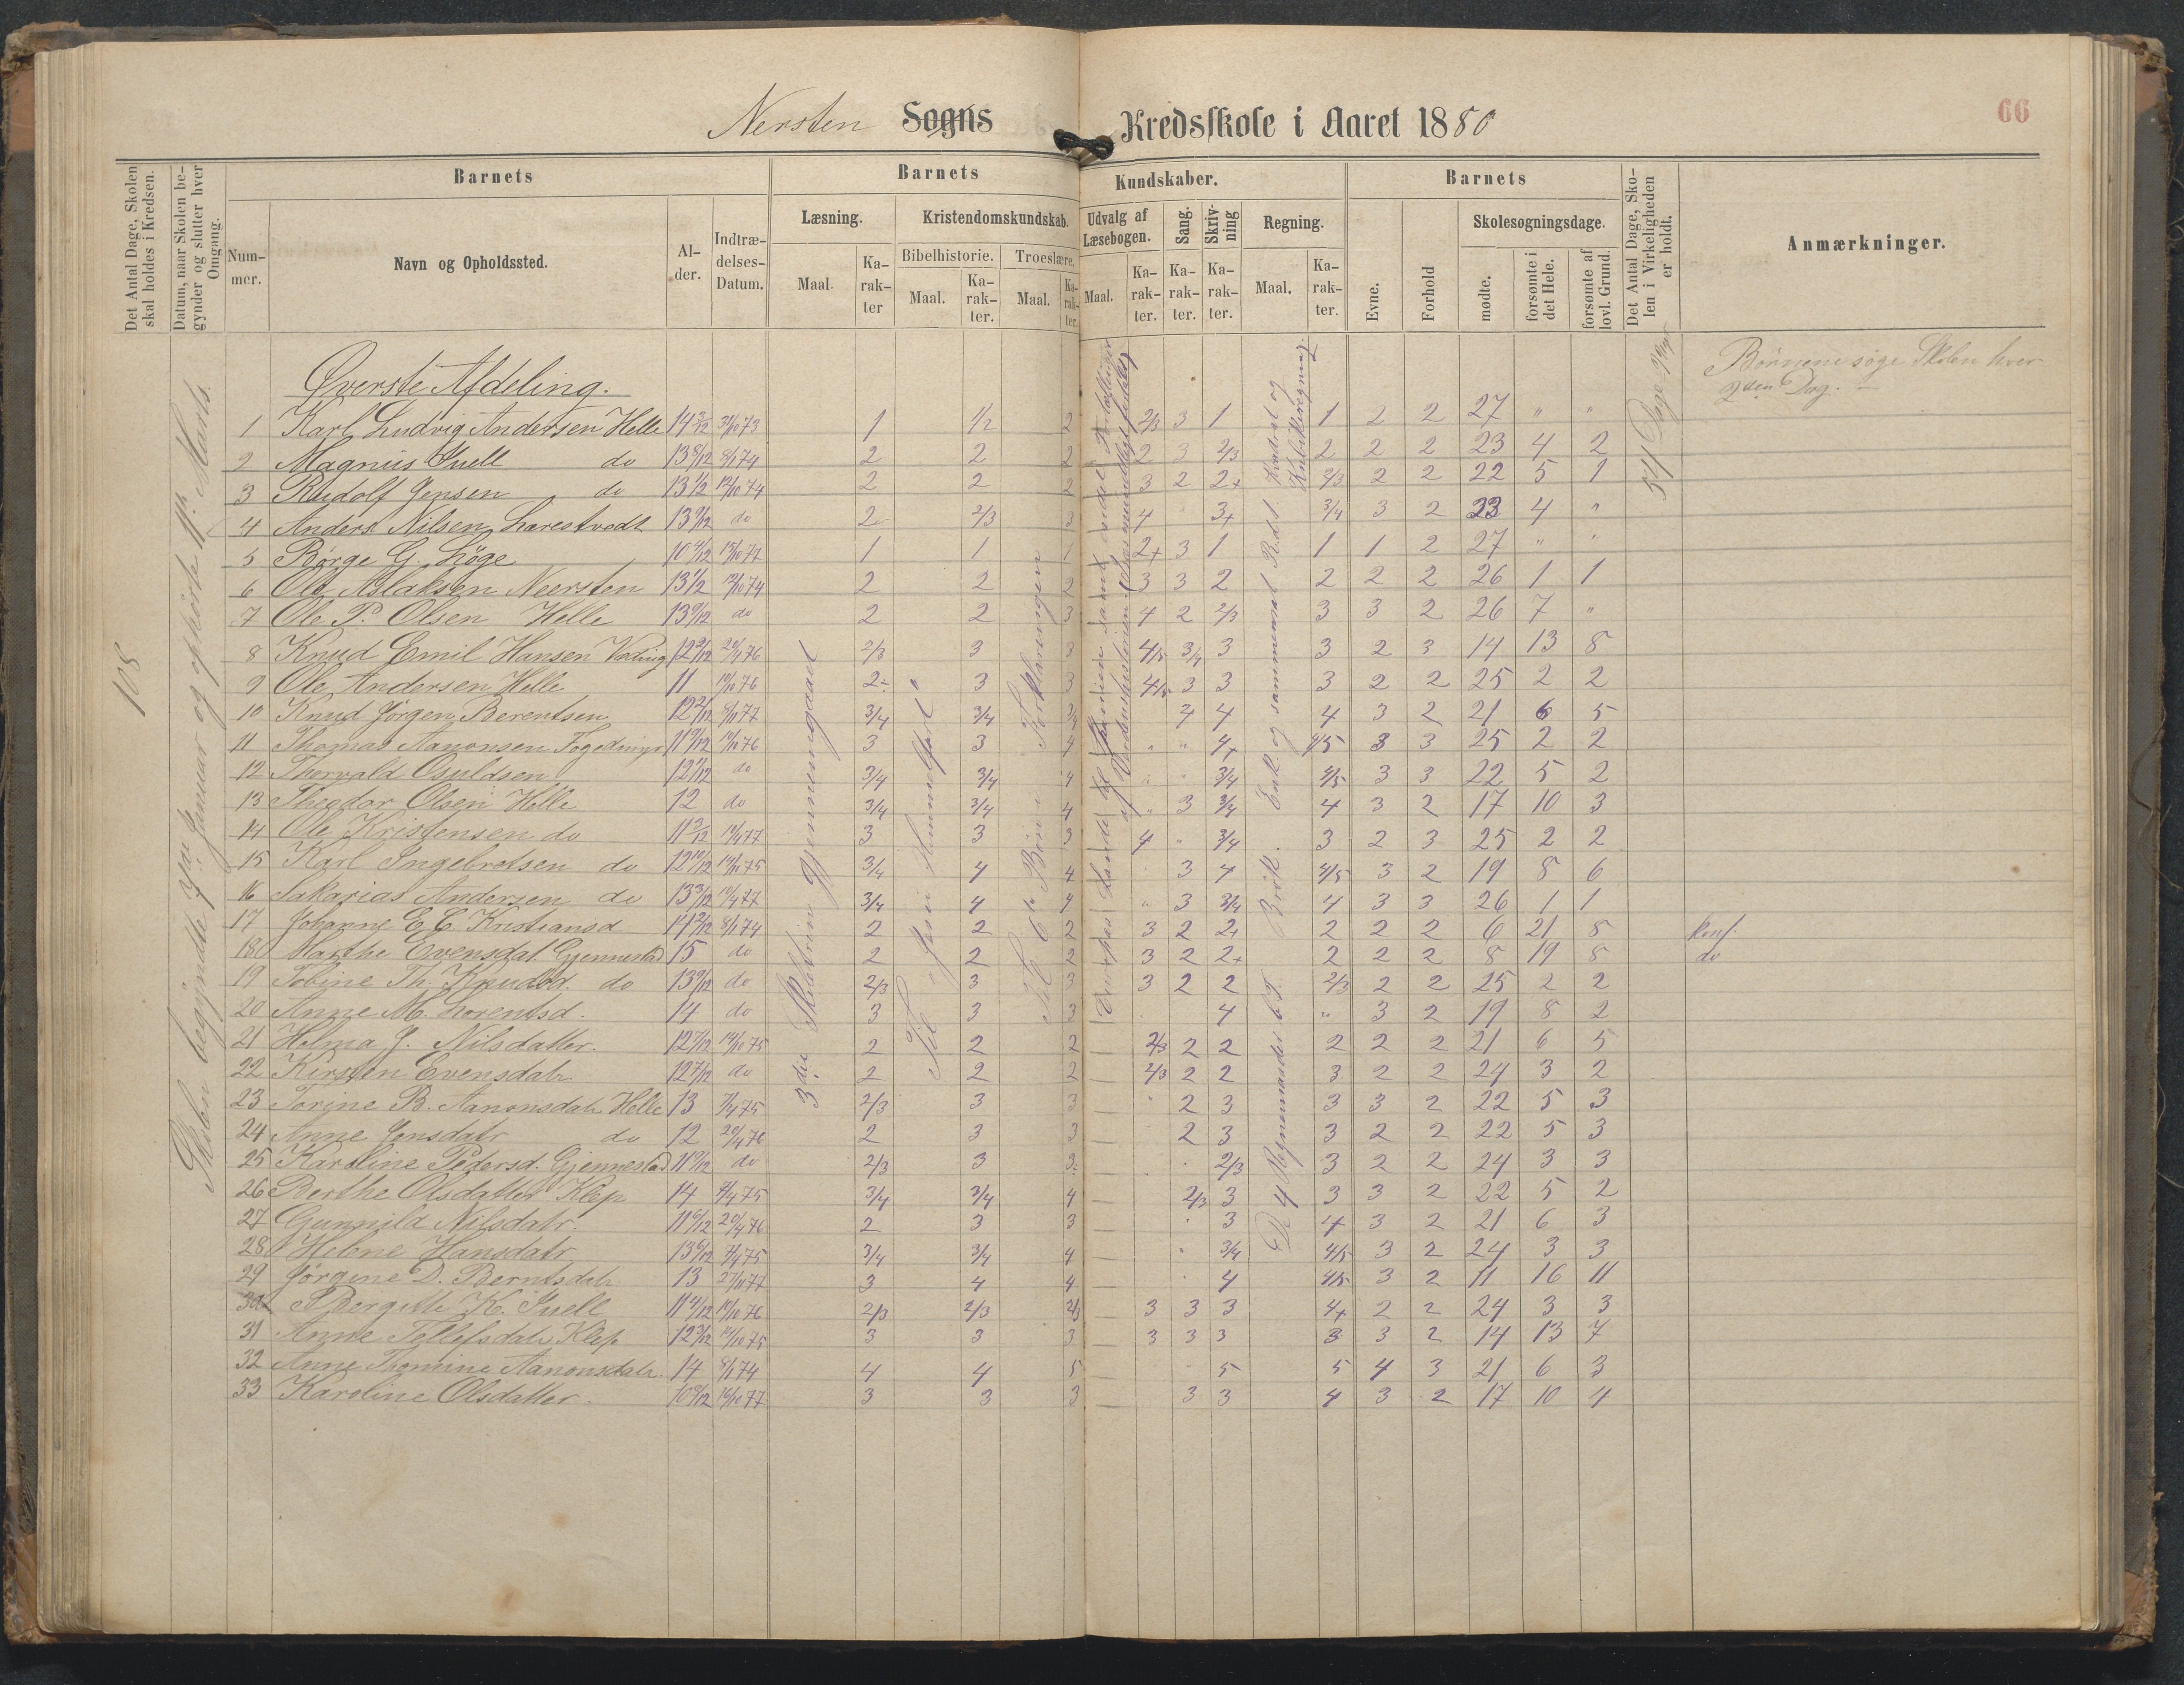 Nersten Sogns Kredsskole i Aaret 1880
66
Det Antal Dage, Skolen skal holdes i Kredsen.
Datum, naar Skolen begynder og slutter hver Omgang.
Barnets
Nummer.
Navn og Opholdssted.
Alder.
Indtrædelses-Datum.
Barnets
Kundskaber.
Læsning.
Maal.
Karakter
Kristendomskundskab.
Bibelhistorie.
Maal.
Karakter.
Troeslære.
Maal.
Karakter.
Udvalg af Læsebogen.
Maal.
Karakter.
Sang.
Karakter.
Skrivning
Karakter.
Regning.
Maal.
Karakter.
Barnets
Evne.
Forhold
Skolesøgningsdage.
mødte.
forsømte i det Hele.
forsømte af lovl. Grund.
Det Antal Dage, Skolen i Virkeligheden er holdt.
Anmærkninger.
108
Skolen begyndte 7de Januar og ophørte 11te Marts.
Øverste Afdeling.
Børnene søge Skolen hver
2den Dag.
54 Dage
3die Skoletrin gjennemgaaet
Til Jesu Himmelfart
Til 6te Bøn i Forklaringen
De 4 Regnemaader b. T. Brøk. Enk. og sammensat R.d.t. Kvadrat og Kubikregning
1 Karl Ludvig Andersen Helle 14 3/12 31/10 73 1 1/2 2 2/3 3 1 1 2 2 27 " "
2 Magnus Juell do 13 8/12 8/1 74 2 2 2 2 3 2/3 2 2 2 23 4 2
3 Rudolf Jensen do 13 1/2 12/10 74 2 2 2 3 2 2+ 2/3 2 2 22 5 1
4 Anders Nilsen Larestvedt 13 9/12 do 2 2/3 3 4 3+ 3/4 3 2 23 4 "
5 Børge G. Løge 10 4/12 15/10 77 1 1 1 2+ 3 1 1 1 2 27 " "
6 Ole Aslaksen Neersten 13 1/2 12/10 74 2 2 2 3 3 2 2 2 2 26 1 1
7 Ole P. Olsen Helle 13 9/12 do 2 2 3 4 2 2/3 3 3 2 26 7 "
8 Knud Emil Hansen 12 9/12 20/4 76 2/3 3 3 4/5 3/4 3 3 2 3 14 13 8
9 Ole Andersen Helle 11 10/10 76 2- 3 3 4/5 3 3 3 2 2 25 2 2
10 Knud Jørgen Berentsen 12 2/12 8/11 77 3/4 3/4 3/4 4 4 4 3 2 21 6 5
11 Thomas Aanonsen Fogedmyr 11 9/12 10/10 76 3 3 4 " " 4+ 4/5 3 3 25 2 2
12 Thorvald Osuldsen 12 7/12 do 3/4 3/4 4 " " 3/4 4/5 3 3 22 5 2
13 Theodor Olsen Helle 12 do 3/4 3/4 4 " 3 3/4 4 3 2 17 10 3
14 Ole Kristensen do 11 3/12 19/4 77 3 3 3 4 " 3/4 3 2 3 25 2 2
15 Karl Ingebretsen do 12 10/12 14/10 75 3/4 4 4 3 4 4/5 3 2 19 8 6
16 Sakarias Andersen do 13 3/12 19/4 77 3/4 4 4 " 3 3/4 4 3 3 26 1 1
17 Johanne E. C. Kristiansd 14 2/12 8/1 74 2 2 2 3 2 2+ 2 2 2 6 21 8 konf.
18 Marthe Evensdat. Gjennestad 15 do 2 2 2 3 2 2+ 2 2 2 8 19 8 do
19 Tobine Th. Knudsdr. do 13 9/12 do 2/3 3 3 3 2 2 2/3 2 2 25 2 2
20 Anne M. Lorentsd. 14 do 3 3 3 4 " 3 2 19 8 2
21 Helma J. Nilsdatter. 12 7/12 14/10 75 2 2 2 2/3 2 2 2 2 2 21 6 5
22 Kirsten Evensdatr 12 7/12 do 2 2 2 2/3 2 2 3 2 2 24 3 2
23 Torine B. Aanonsdatr Helle 13 7/4 75 2/3 3 3 " 2 3 3 3 2 22 5 3
24 Anne Jensdatr do 12 20/4 76 2 3 3 2 3 3 2 2 22 5 3
25 Karoline Pedersd. Gjennestad 11 9/12 do 2/3 3 3- 2/3 3 2 2 24 3 3
26 Berthe Olsdatter Klep 14 7/4 75 3/4 3/4 4 2/3 3 3 3 2 22 5 2
27 Gunnild Nilsdatr. 11 6/12 20/4 76 2 3 3 3 4 3 2 21 6 3
28 Helene Hansdatr 13 6/12 7/4 75 3/4 3/4 4 " 3/4 4/5 3 2 24 3 3
29 Jørgine D. Berntsdatr. 13 27/11 77 3 4 4 4 4/5 3 2 11 16 11
30 Bergitte K. Juell 11 4/12 10/10 76 2/3 2/3 2/3 3 3 3 4+ 2 2 24 3 3
31 Anne Tellefsdatr Klep 12 3/12 14/10 75 3 3 3 3 3 3 3 3 2 14 13 7
32 Anne Thomine Aanonsdatr. 14 8/1 74 4 4 5 5 5 4 3 21 6 3
33 Karoline Olsdatter. 10 8/12 16/10 77 3 3 3 3 3 4 3 2 17 10 4